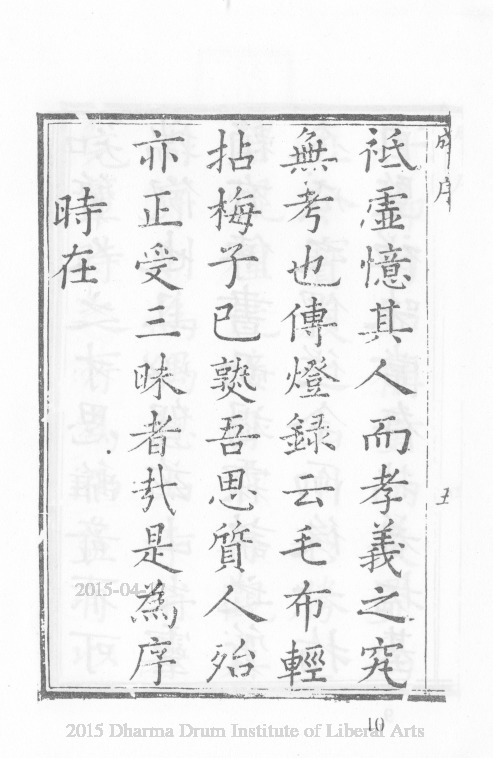 序
五
祗虛憶其人而孝義之究
無考也傳燈錄云毛布輕
拈梅子已熟吾思質人殆
亦正受三昧者哉是為序
時在
2015-04-
10
2015 Dharma Drum Institute of Liberal Arts